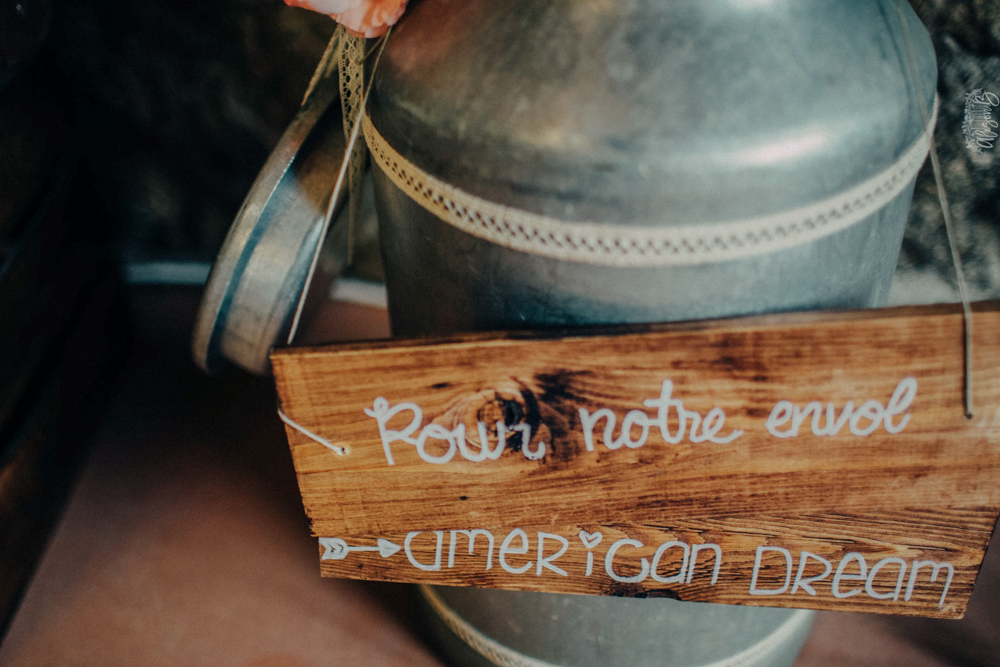 Pour notre envol
american Dream